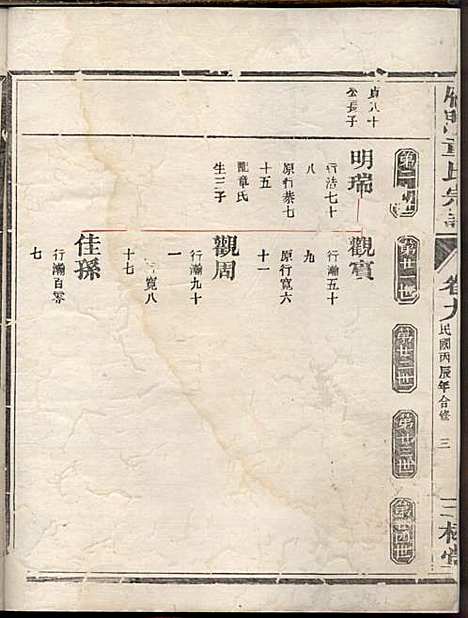 卷九
民國丙辰年合修
三
第廿一世
第廿二世
第廿三世
第廿四世
公長子
明瑞
行浩七十
八
原行恭七
十五
配章氏
生三子
觀寶
行瀚五十
九
原行寬六
十一
觀周
行瀚九十
一
寬八
十七
佳孫
行瀚百零
七